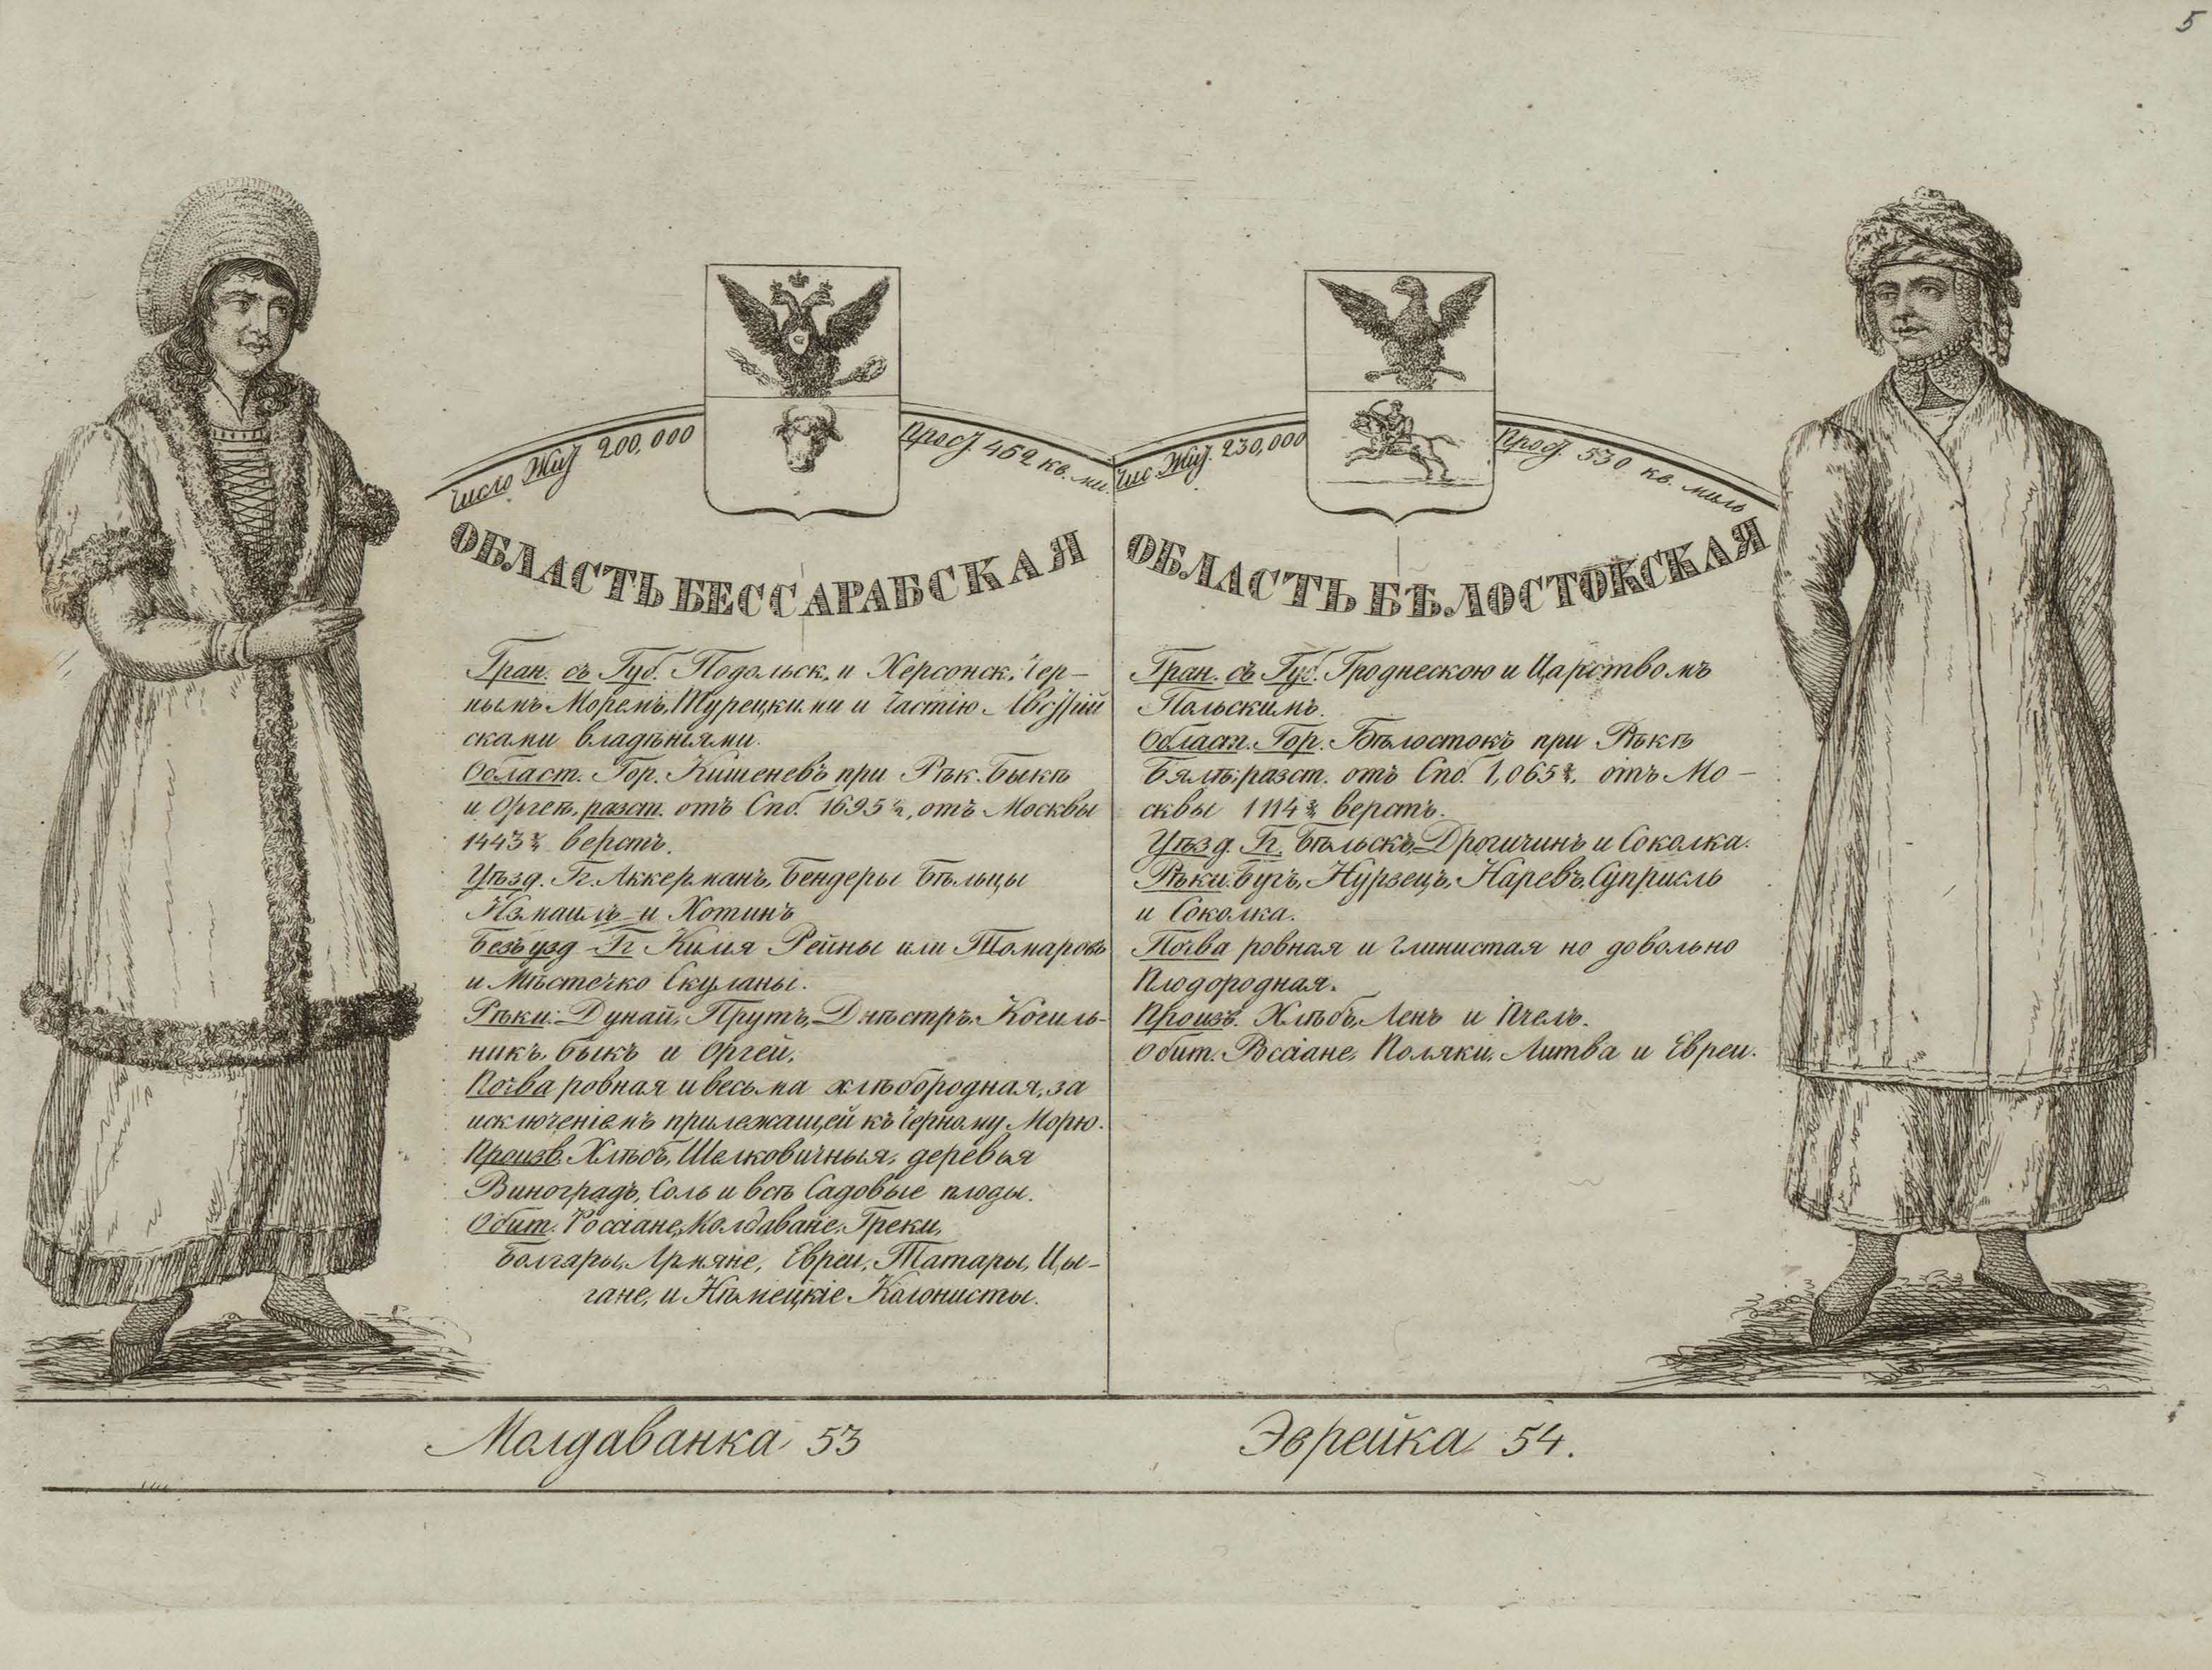 5
Число Жит. 200,000
Прост. 462 кв. ми.
ОБЛАСТЬ БЕССАРАБСКАЯ
Гран. съ Губ. Подольск. и Херсонск. Чер-
нымъ Моремъ, Турецкими и частію Австрій
сками владѣніями.
Област. Гор. Кишеневъ при Рѣк. Быкѣ
и Оргеѣ, разст. отъ Спб. 1695½, отъ Москвы
1443¾ верстъ.
Уѣзд. Гг. Аккерманъ, Бендеры Бѣльцы
Измаилъ и Хотинъ
Безъ узд. Гг. Килия Рейны или Томаровъ
и Мѣстечко Скуланы.
Рѣки: Дунай, Прутъ, Днѣстръ, Когиль-
никъ, Быкъ и Оргей.
Почва ровная и весьма хлѣбородная, за
исключеніемъ прилежащей къ Черному Морю.
Произв. Хлѣбъ, Шелковичныя, деревья
Виноградъ, Соль и всѣ Садовые плоды.
Обит. Россіане, Молдаване, Греки,
Болгары, Армяне, Евреи, Татары, Цы-
гане, и Нѣмецкіе Колонисты.
Чис. Жит. 230,000
Прост. 530 кв. миль
ОБЛАСТЬ БѢЛОСТОКСКАЯ
Гран. съ Губ. Гроднескою и Царствомъ
Польскимъ.
Област. Гор. Бѣлостокъ при Рѣкѣ
Бялѣ; разст. отъ Спб. 1,065¾, отъ Мо-
сквы 1114¾ верстъ.
Уѣзд. Гг. Бѣльскъ, Дрогичинъ и Соколка.
Рѣки: Бугъ, Нурзецъ, Наревъ, Суприсль
и Соколка.
Почва ровная и глинистая но довольно
Плодородная.
Произв. Хлѣбъ, Ленъ и Пчелъ.
Обит. Рссіане, Поляки, Литва и Евреи.
Молдаванка 53
Эврейка 54.